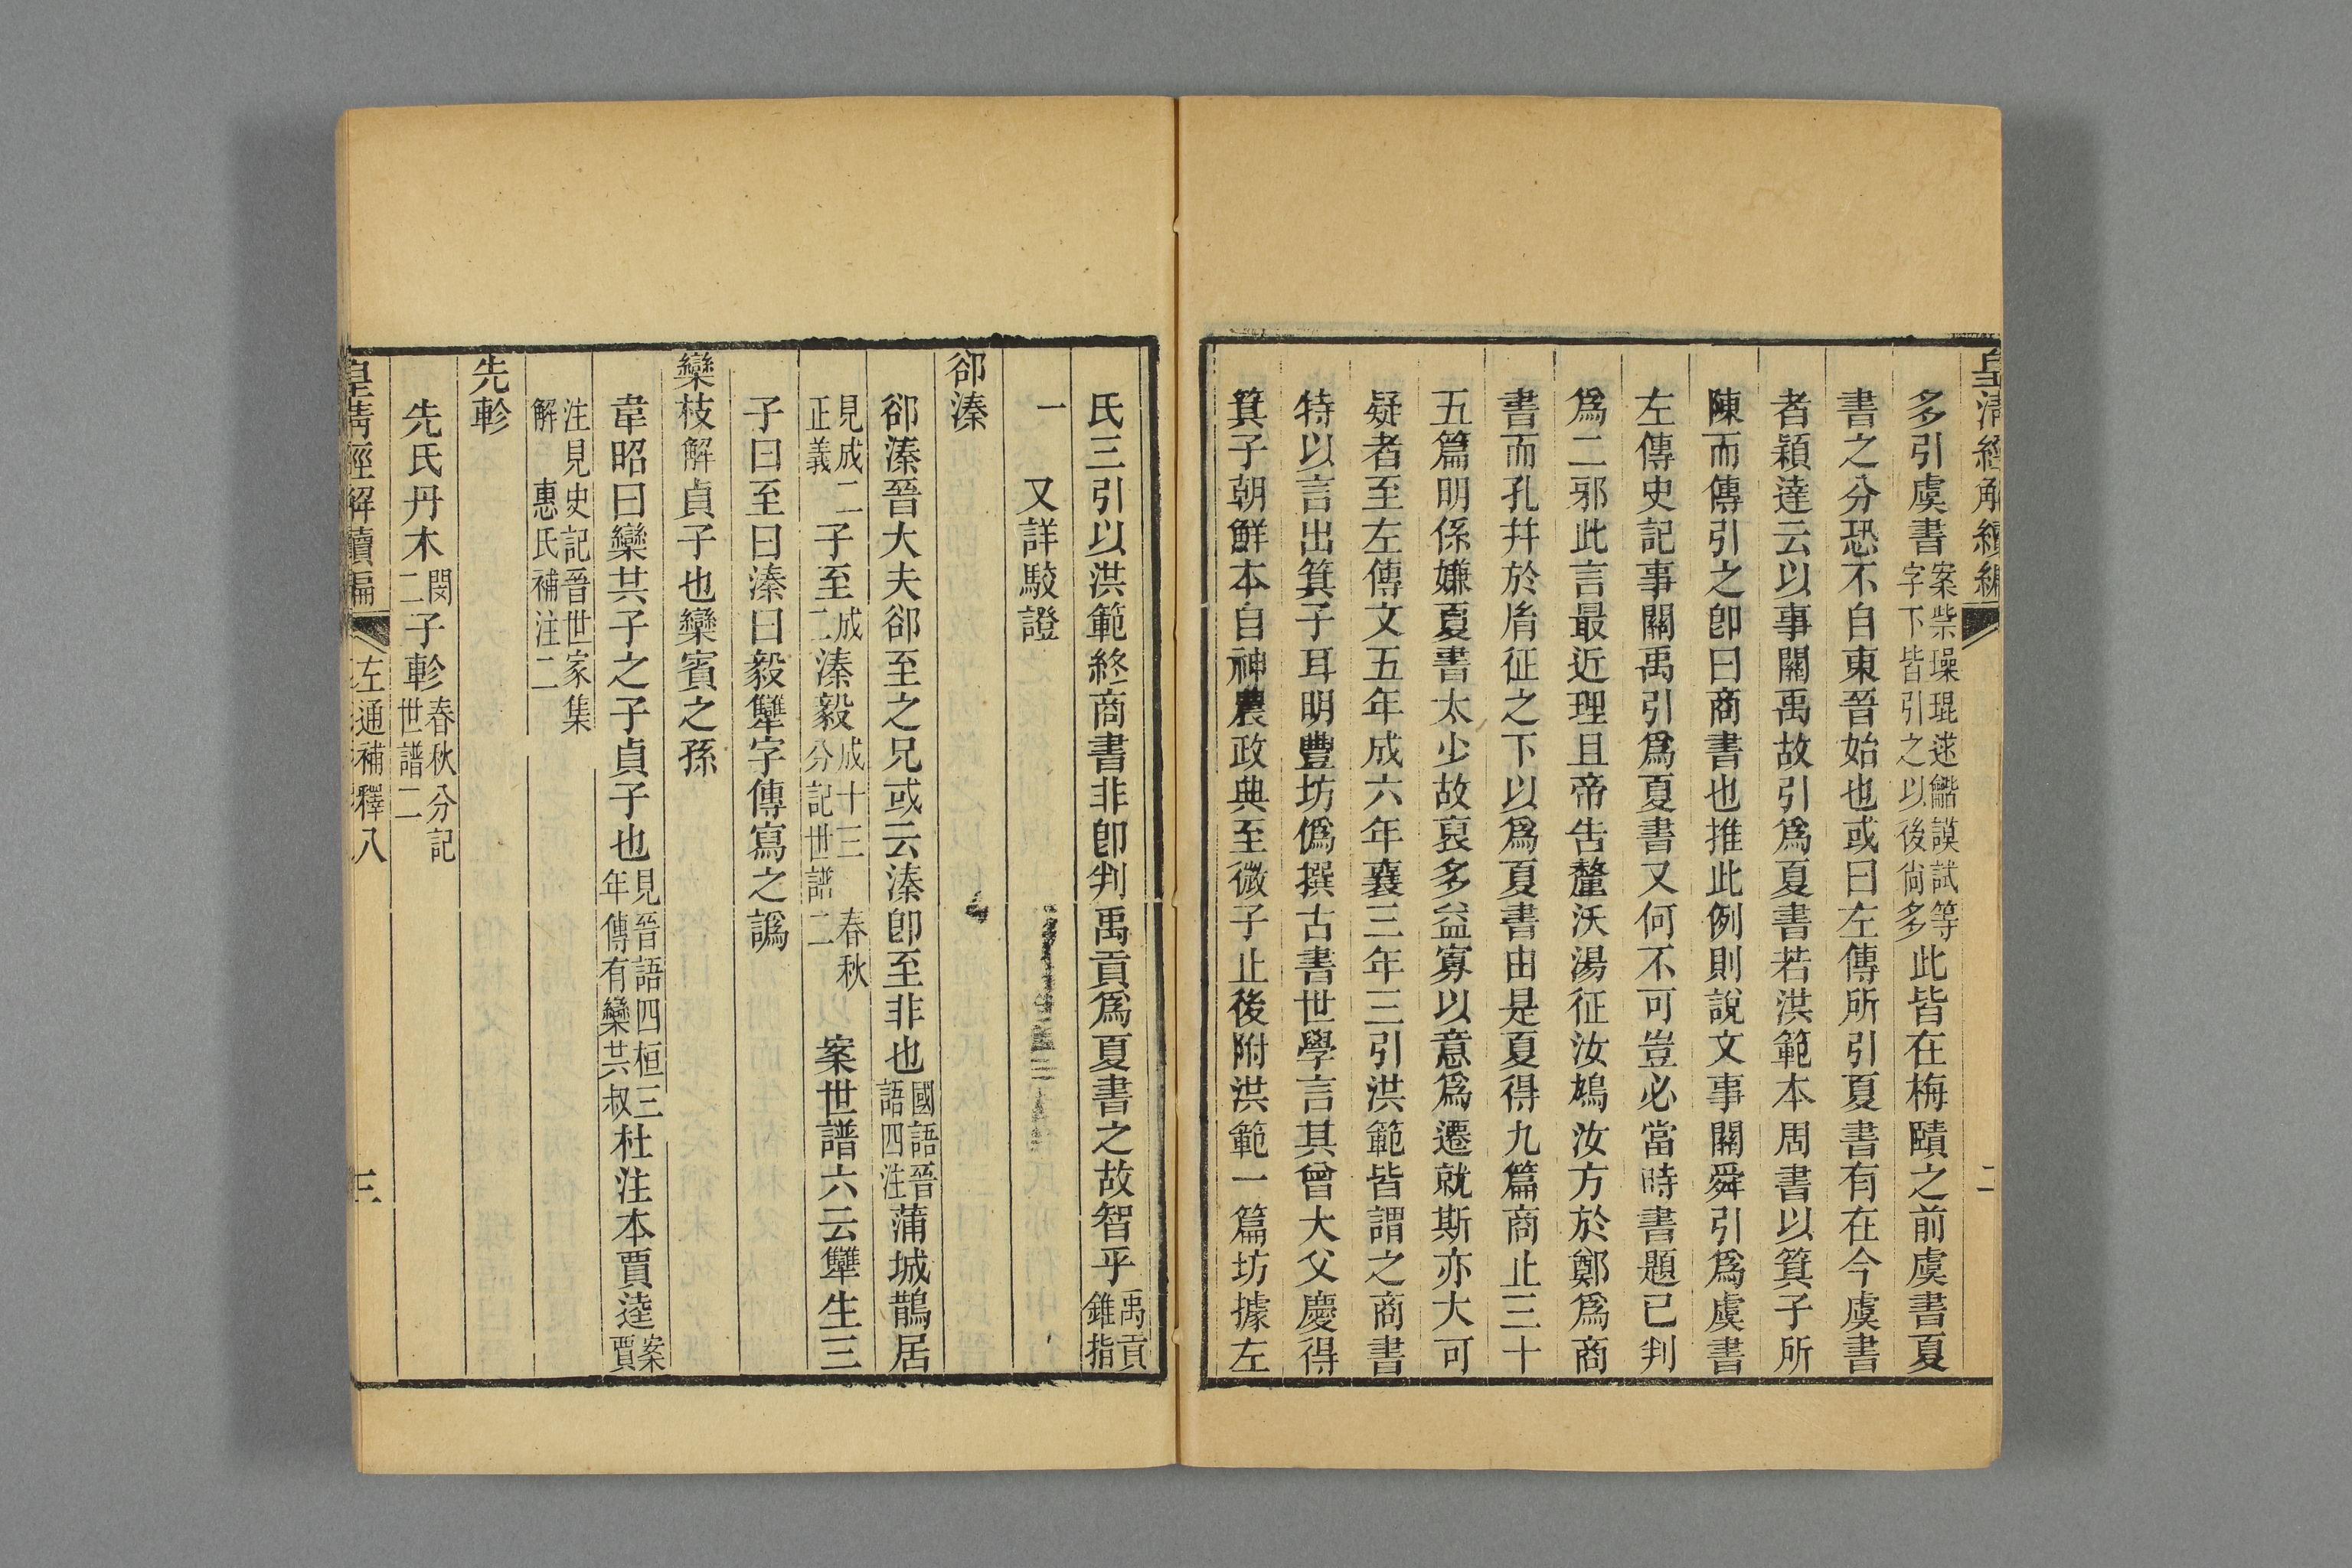 皇清經解續編 二
多引虞書案柴璪琨逑䰞謨試等字下皆引之以後尙多此皆在梅賾之前虞書夏
書之分恐不自東晉始也或曰左傳所引夏書有在今虞書
者穎達云以事關禹故引爲夏書若洪範本周書以箕子所
陳而傳引之卽曰商書也推此例則說文事關舜引爲虞書
左傳史記事關禹引爲夏書又何不可豈必當時書題已判
爲二邪此言最近理且帝告釐沃湯征汝鳩汝方於鄭爲商
書而孔幷於胤征之下以爲夏書由是夏得九篇商止三十
五篇明係嫌夏書太少故裒多益寡以意爲遷就斯亦大可
疑者至左傳文五年成六年襄三年三引洪範皆謂之商書
特以言出箕子耳明豐坊僞撰古書世學言其曾大父慶得
箕子朝鮮本自神農政典至微子止後附洪範一篇坊據左
氏三引以洪範終商書非卽判禹貢爲夏書之故智乎禹貢錐指
一 又詳駮證
郤溱
郤溱晉大夫郤至之兄或云溱卽至非也國語晉語四注蒲城鵲居
見成二正義子至成二溱毅成十三 春秋分記世譜二 案世譜六云犨生三
子曰至曰溱曰毅犨字傳寫之譌
欒枝解貞子也欒賓之孫
韋昭曰欒共子之子貞子也見晉語四桓三年傳有欒共叔杜注本賈逵案賈
注見史記晉世家集解 惠氏補注二
先軫
先氏丹木閔二子軫春秋分記世譜二
皇淸經解續編 左通補釋八 三